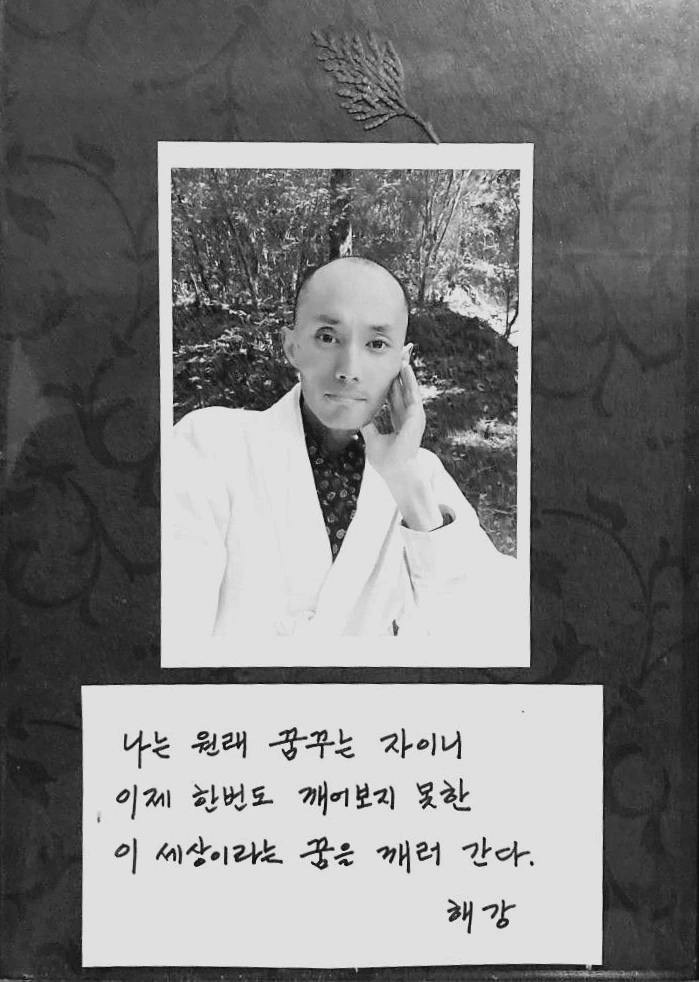 나는 원래 꿈꾸는 자이니
이제 한번도 깨어보지 못한
이 세상이라는 꿈을 깨러 간다.
해강